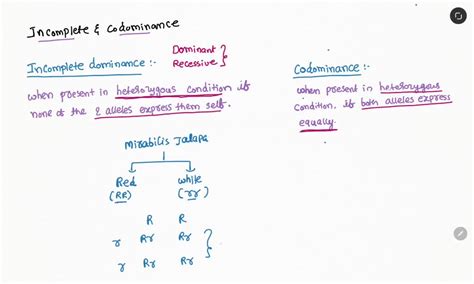 Incomplete & Codominance
Dominant
Recessive
Incomplete dominance :-
when present in heterozygous condition if
none of the 2 alleles express them self.
Codominance :-
when present in heterozygous
condition, if both alleles express
equally.
Mirabilis Jalapa
Red
(RR)
while
(rr)
R R
r Rr Rr
r Rr Rr